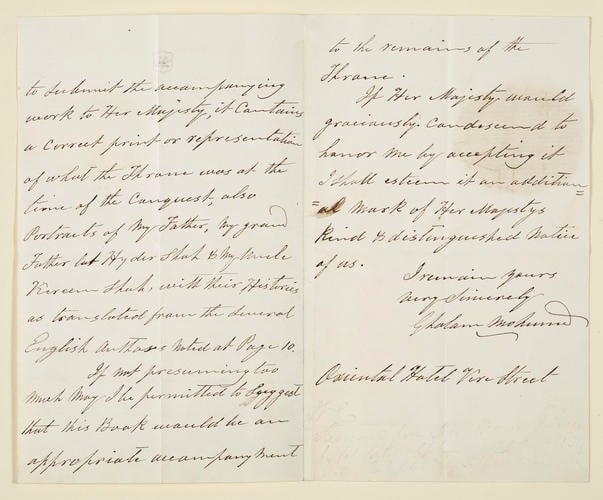 to submit the accompanying
work to Her Majesty, it Contains
a Correct print or representation
of what the Throne was at the
time of the Conquest, also
Portraits of My Father, My grand
Father Hyder Shah & My Uncle
Kereem Shah, with their Histories
as translated from the Several
English Authors Noted at Page 10.
If not presuming too
Much May I be permitted to Suggest
that this Book would be an
appropriate accompanyment
to the remains of the
Throne.
If Her Majesty would
graciously Condescend to
honor Me by accepting it
I shall esteem it an addition=
=al Mark of Her Majestys
Kind & distinguished Notice
of us.
I remain yours
very Sincerely
Gholam Mohumed
Oriental Hotel Vere Street